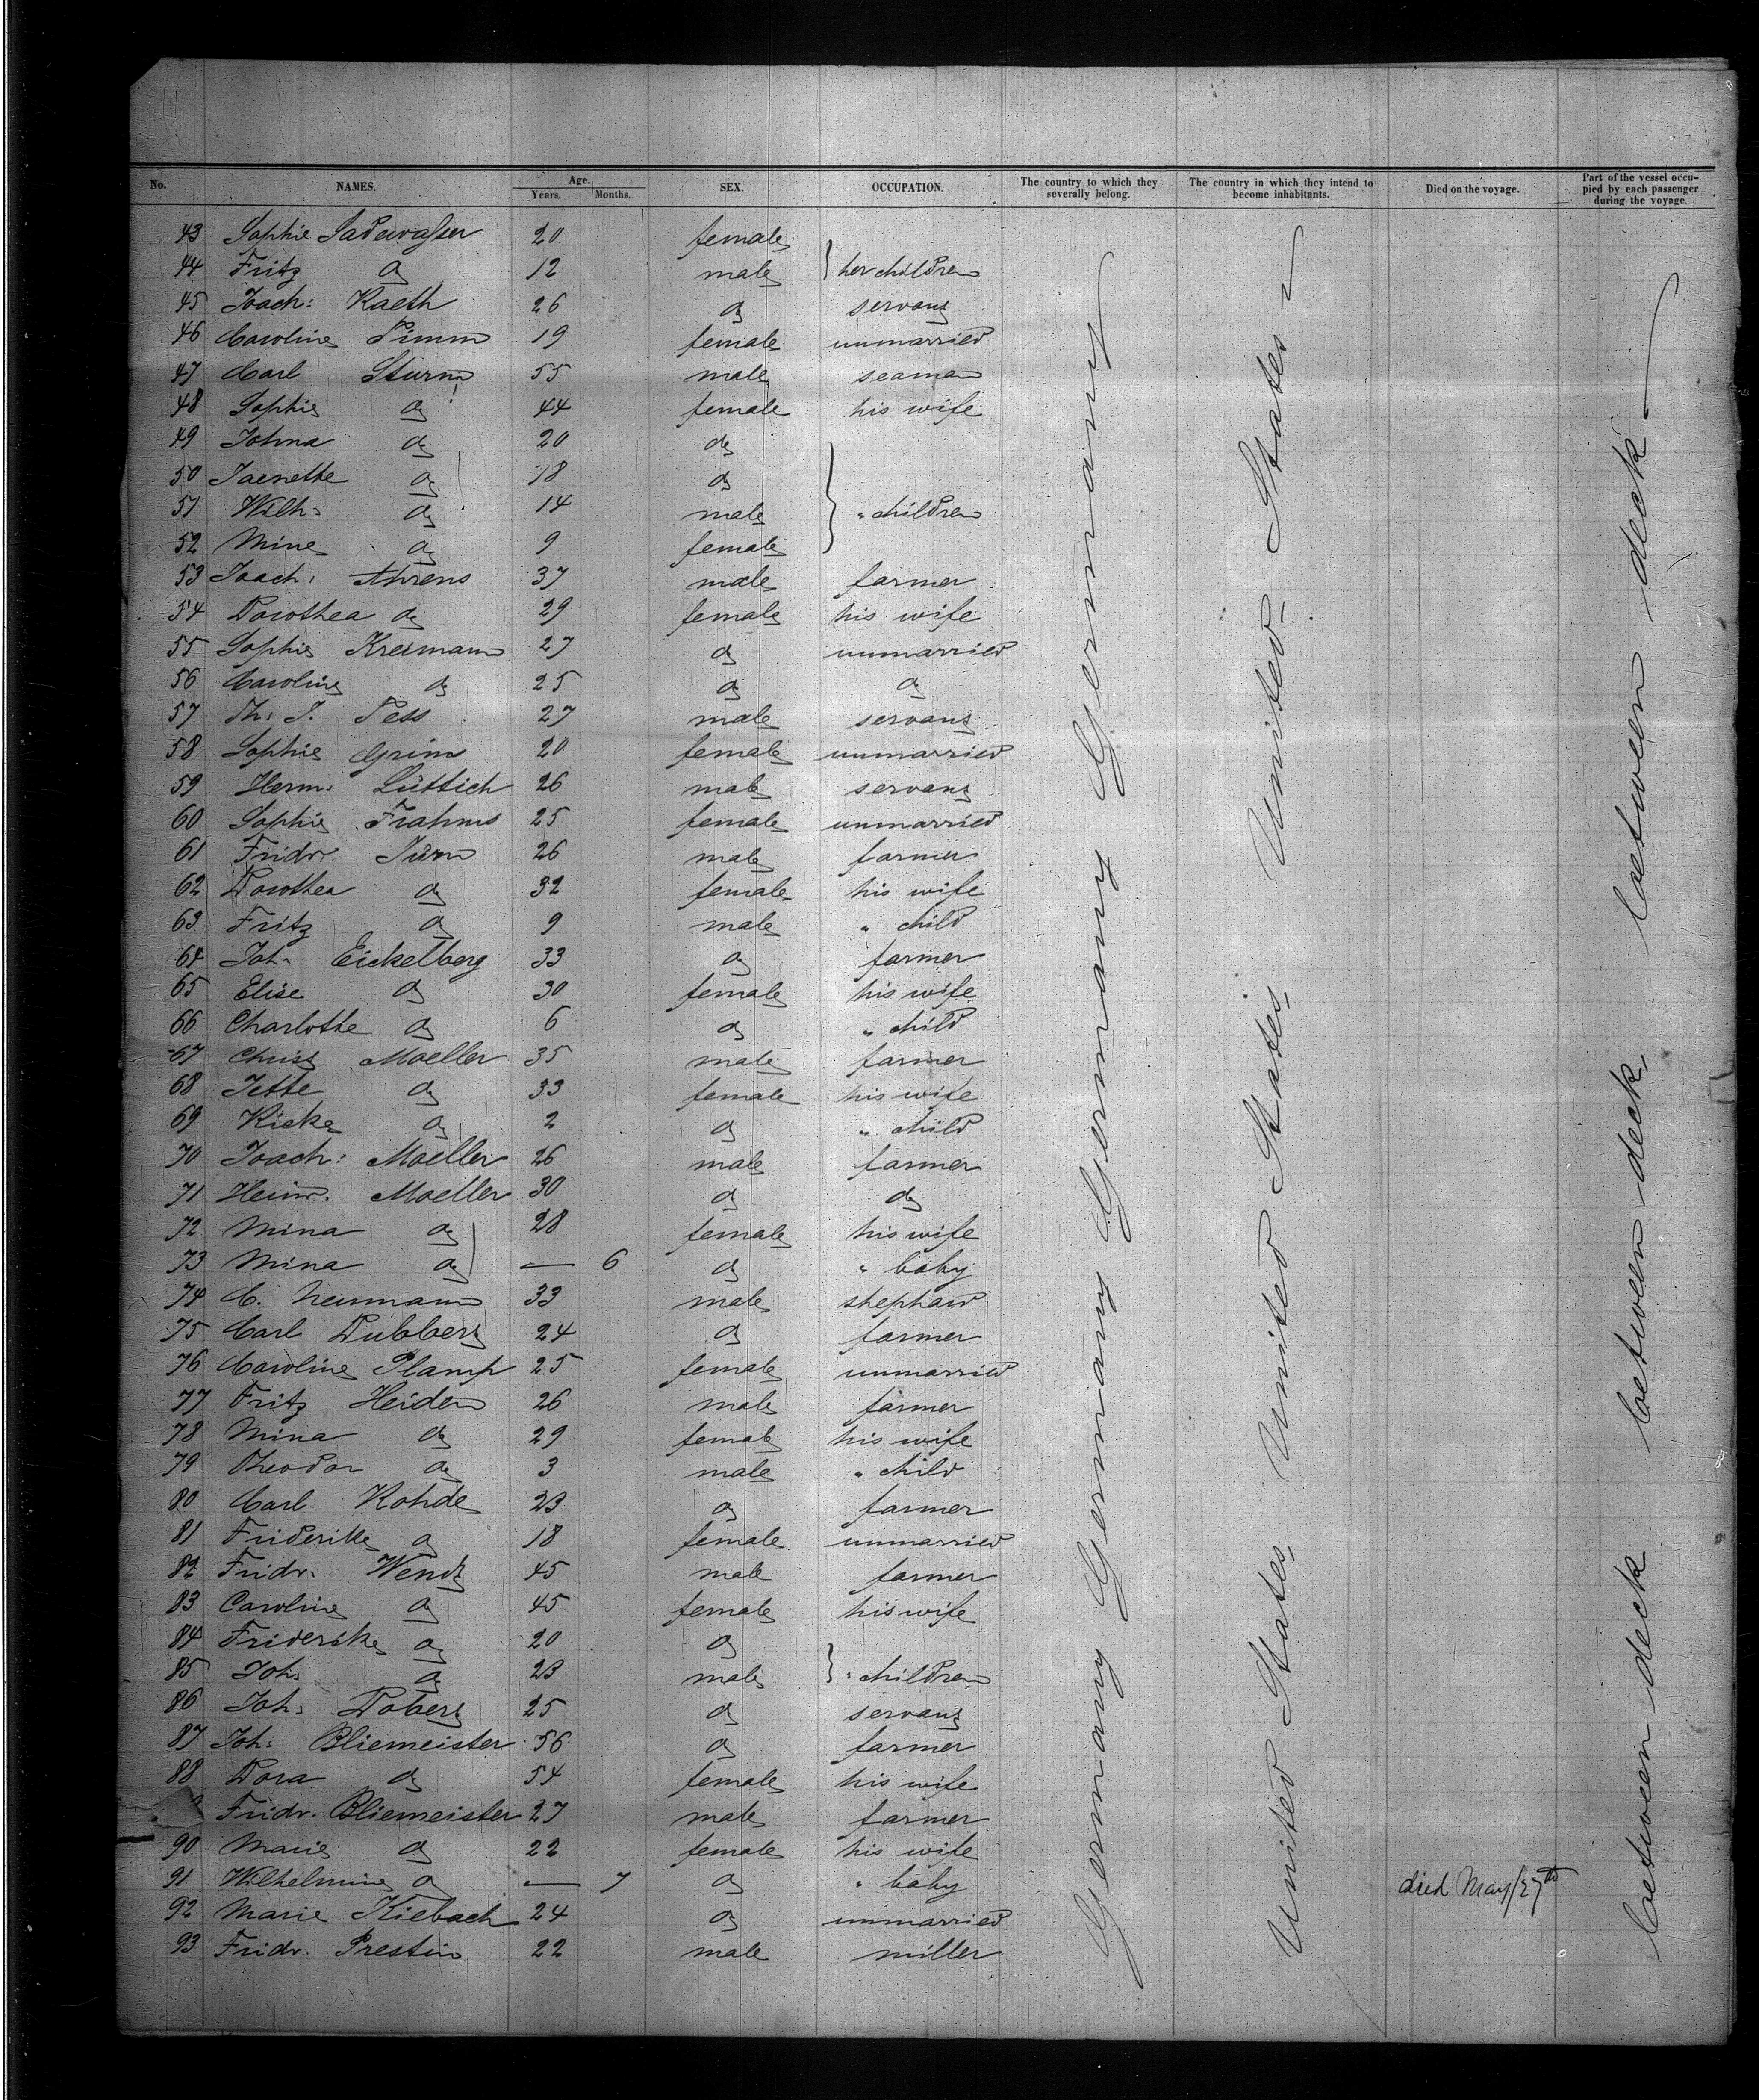 No. NAMES. Age. Years. Months. SEX. OCCUPATION. The country to which they severally belong. The country in which they intend to become inhabitants. Died on the voyage. Part of the vessel occupied by each passenger during the voyage.
43 Sophie Sadewasser 20 female
44 Fritz do 12 male } her children
45 Joach: Raeth 26 do servant
46 Caroline Timm 19 female unmarried
47 Carl Sturm 55 male seaman
48 Sophie do 44 female his wife
49 Johna do 20 do
50 Jaenette do 18 do
51 Wilh: do 14 male } " children
52 Mine do 9 female
53 Joach: Ahrens 37 male farmer
54 Dorothea do 29 female his wife
55 Sophie Kreimann 27 do unmarried
56 Caroline do 25 do do
57 Th: J. Pess 27 male servant
58 Sophie Grim 20 female unmarried
59 Herm: Lüttich 26 male servant
60 Sophie Frahms 25 female unmarried
61 Fridr 26 male farmer
62 Dorothea do 32 female his wife
63 Fritz do 9 male " child
64 Joh: Eickelberg 33 do farmer
65 Elise do 30 female his wife
66 Charlotte do 6 do " child
67 Christ Moeller 35 male farmer
68 Jette do 33 female his wife
69 Rieke do 2 do " child
70 Joach: Moeller 26 male farmer
71 Heinr. Moeller 30 do do
72 Mina do 28 female his wife
73 Mina do — 6 do " baby
74 C. Neumann 33 male shephard
75 Carl Dubbert 24 do farmer
76 Caroline Plamp 25 female unmarried
77 Fritz Heiden 26 male farmer
78 Mina do 29 female his wife
79 Theodor do 3 male " child
80 Carl Rohde 23 do farmer
81 Friderike do 18 female unmarried
82 Fridr. Wendt 45 male farmer
83 Caroline do 45 female his wife
84 Friderike do 20 do
85 Joh: do 23 male } " children
86 Joh: Dobert 25 do servant
87 Joh: Bliemeister 56 do farmer
88 Dora do 54 female his wife
Fridr. Bliemeister 27 male farmer
90 Marie do 22 female his wife
91 Wilhelmine do — 7 do " baby died May/27th
92 Marie Kiebach 24 do unmarried
93 Fridr. Prestin 22 male miller
Germany Germany Germany Germany
United States United States United States
between deck between deck between deck